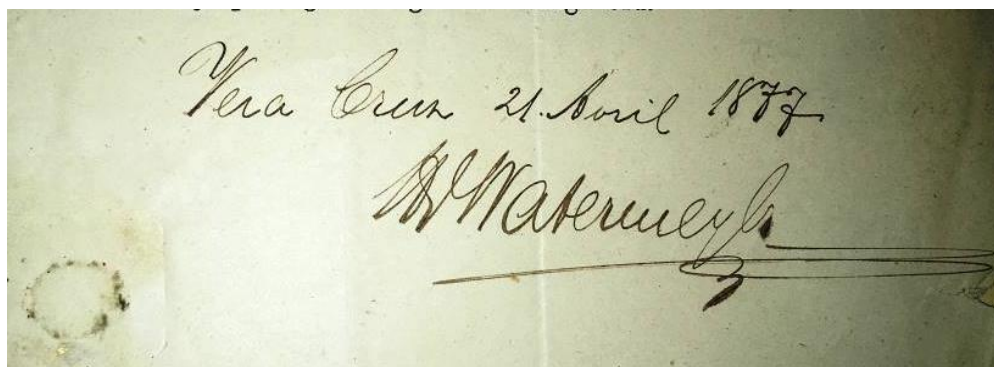 Vera Cruz 21. April 1877
Watermeyer